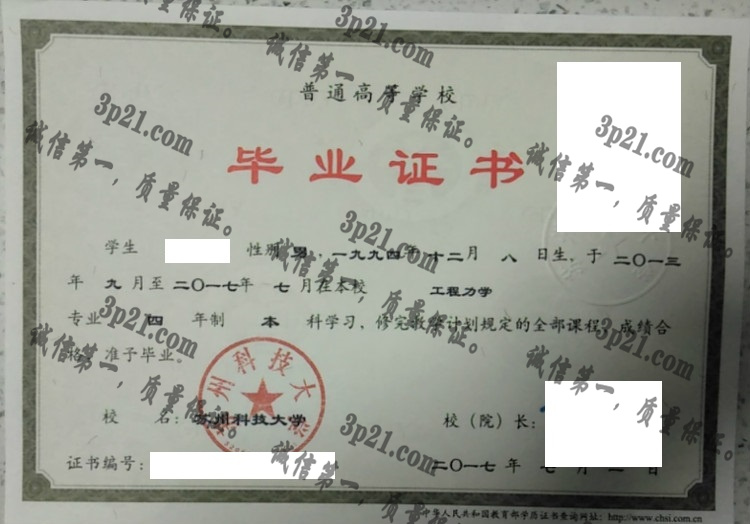 普通高等学校
毕业证书
学生 性别 男，一九九四年 十二月 八 日生，于 二〇一三
年 九 月至 二〇一七年 七 月在本校 工程力学
专业 四 年制 本 科学习，修完教学计划规定的全部课程，成绩合
格，准予毕业。
校 名：苏州科技大学 校（院）长：
证书编号： 二〇一七年 七月 日
中华人民共和国教育部学历证书查询网址：http://www.chsi.com.cn
苏州科技大学
3p21.com
诚信第一，质量保证。
3p21.com
诚信第一，质量保证。
3p21.com
诚信第一，质量保证。
3p21.com
诚信第一，质量保证。
3p21.com
诚信第一，质量保证。
3p21.com
诚信第一，质量保证。
3p21.com
诚信第一，质量保证。
3p21.com
诚信第一，质量保证。